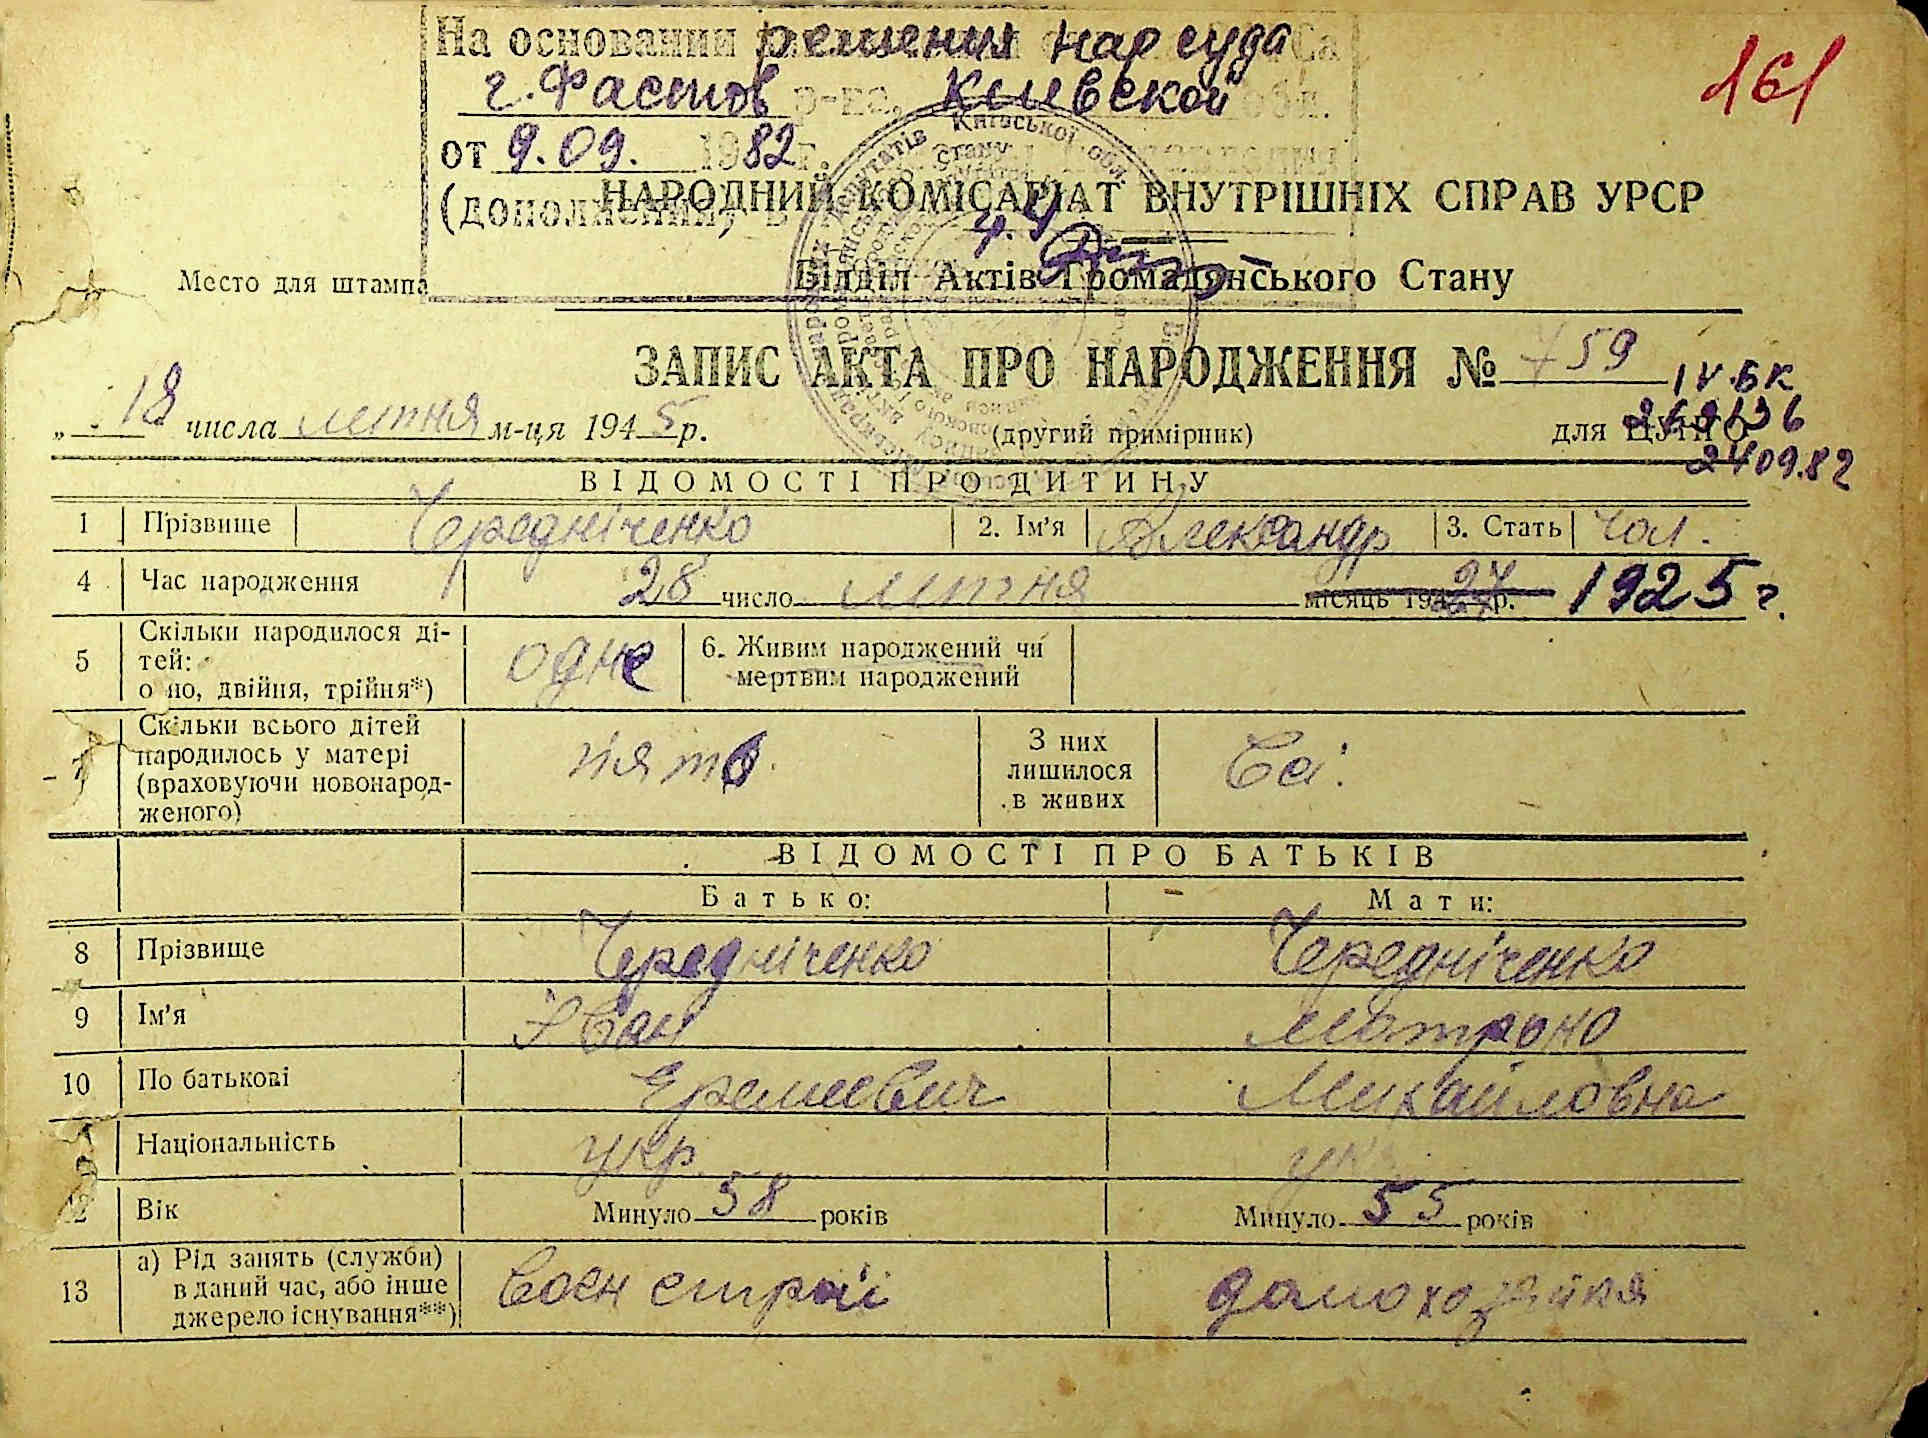 На основании решения нар суда
г. Фастов р-на, Киевской обл.
161
от 9.09. 1982 г.
НАРОДНИЙ КОМІСАРІАТ ВНУТРІШНІХ СПРАВ УРСР
Место для штампа
Відділ Актів Громадянського Стану
ЗАПИС АКТА ПРО НАРОДЖЕННЯ № 759
IV-БК
„18 числа лютня м-ця 1945 р.
(другий примірник)
для
2409.82
ВІДОМОСТІ ПРО ДИТИНУ
1 Прізвище Чередніченко 2. Ім'я Александр 3. Стать Чол.
4 Час народження 28 число лютня місяць 1927 р. 1925 г.
5 Скільки народилося дітей: одно, двійня, трійня*) одне 6. Живим народжений чи мертвим народжений
7 Скільки всього дітей народилось у матері (враховуючи новонародженого) п'ять. З них лишилося в живих Всі.
ВІДОМОСТІ ПРО БАТЬКІВ
Батько: Мати:
8 Прізвище Чередніченко Чередніченко
9 Ім'я Іван Мотрона
10 По батькові Еремеевич Михайловна
Національність укр. укр
12 Вік Минуло 58 років Минуло 55 років
13 а) Рід занять (служби) в даний час, або інше джерело існування**) Воен строй домохозяйка